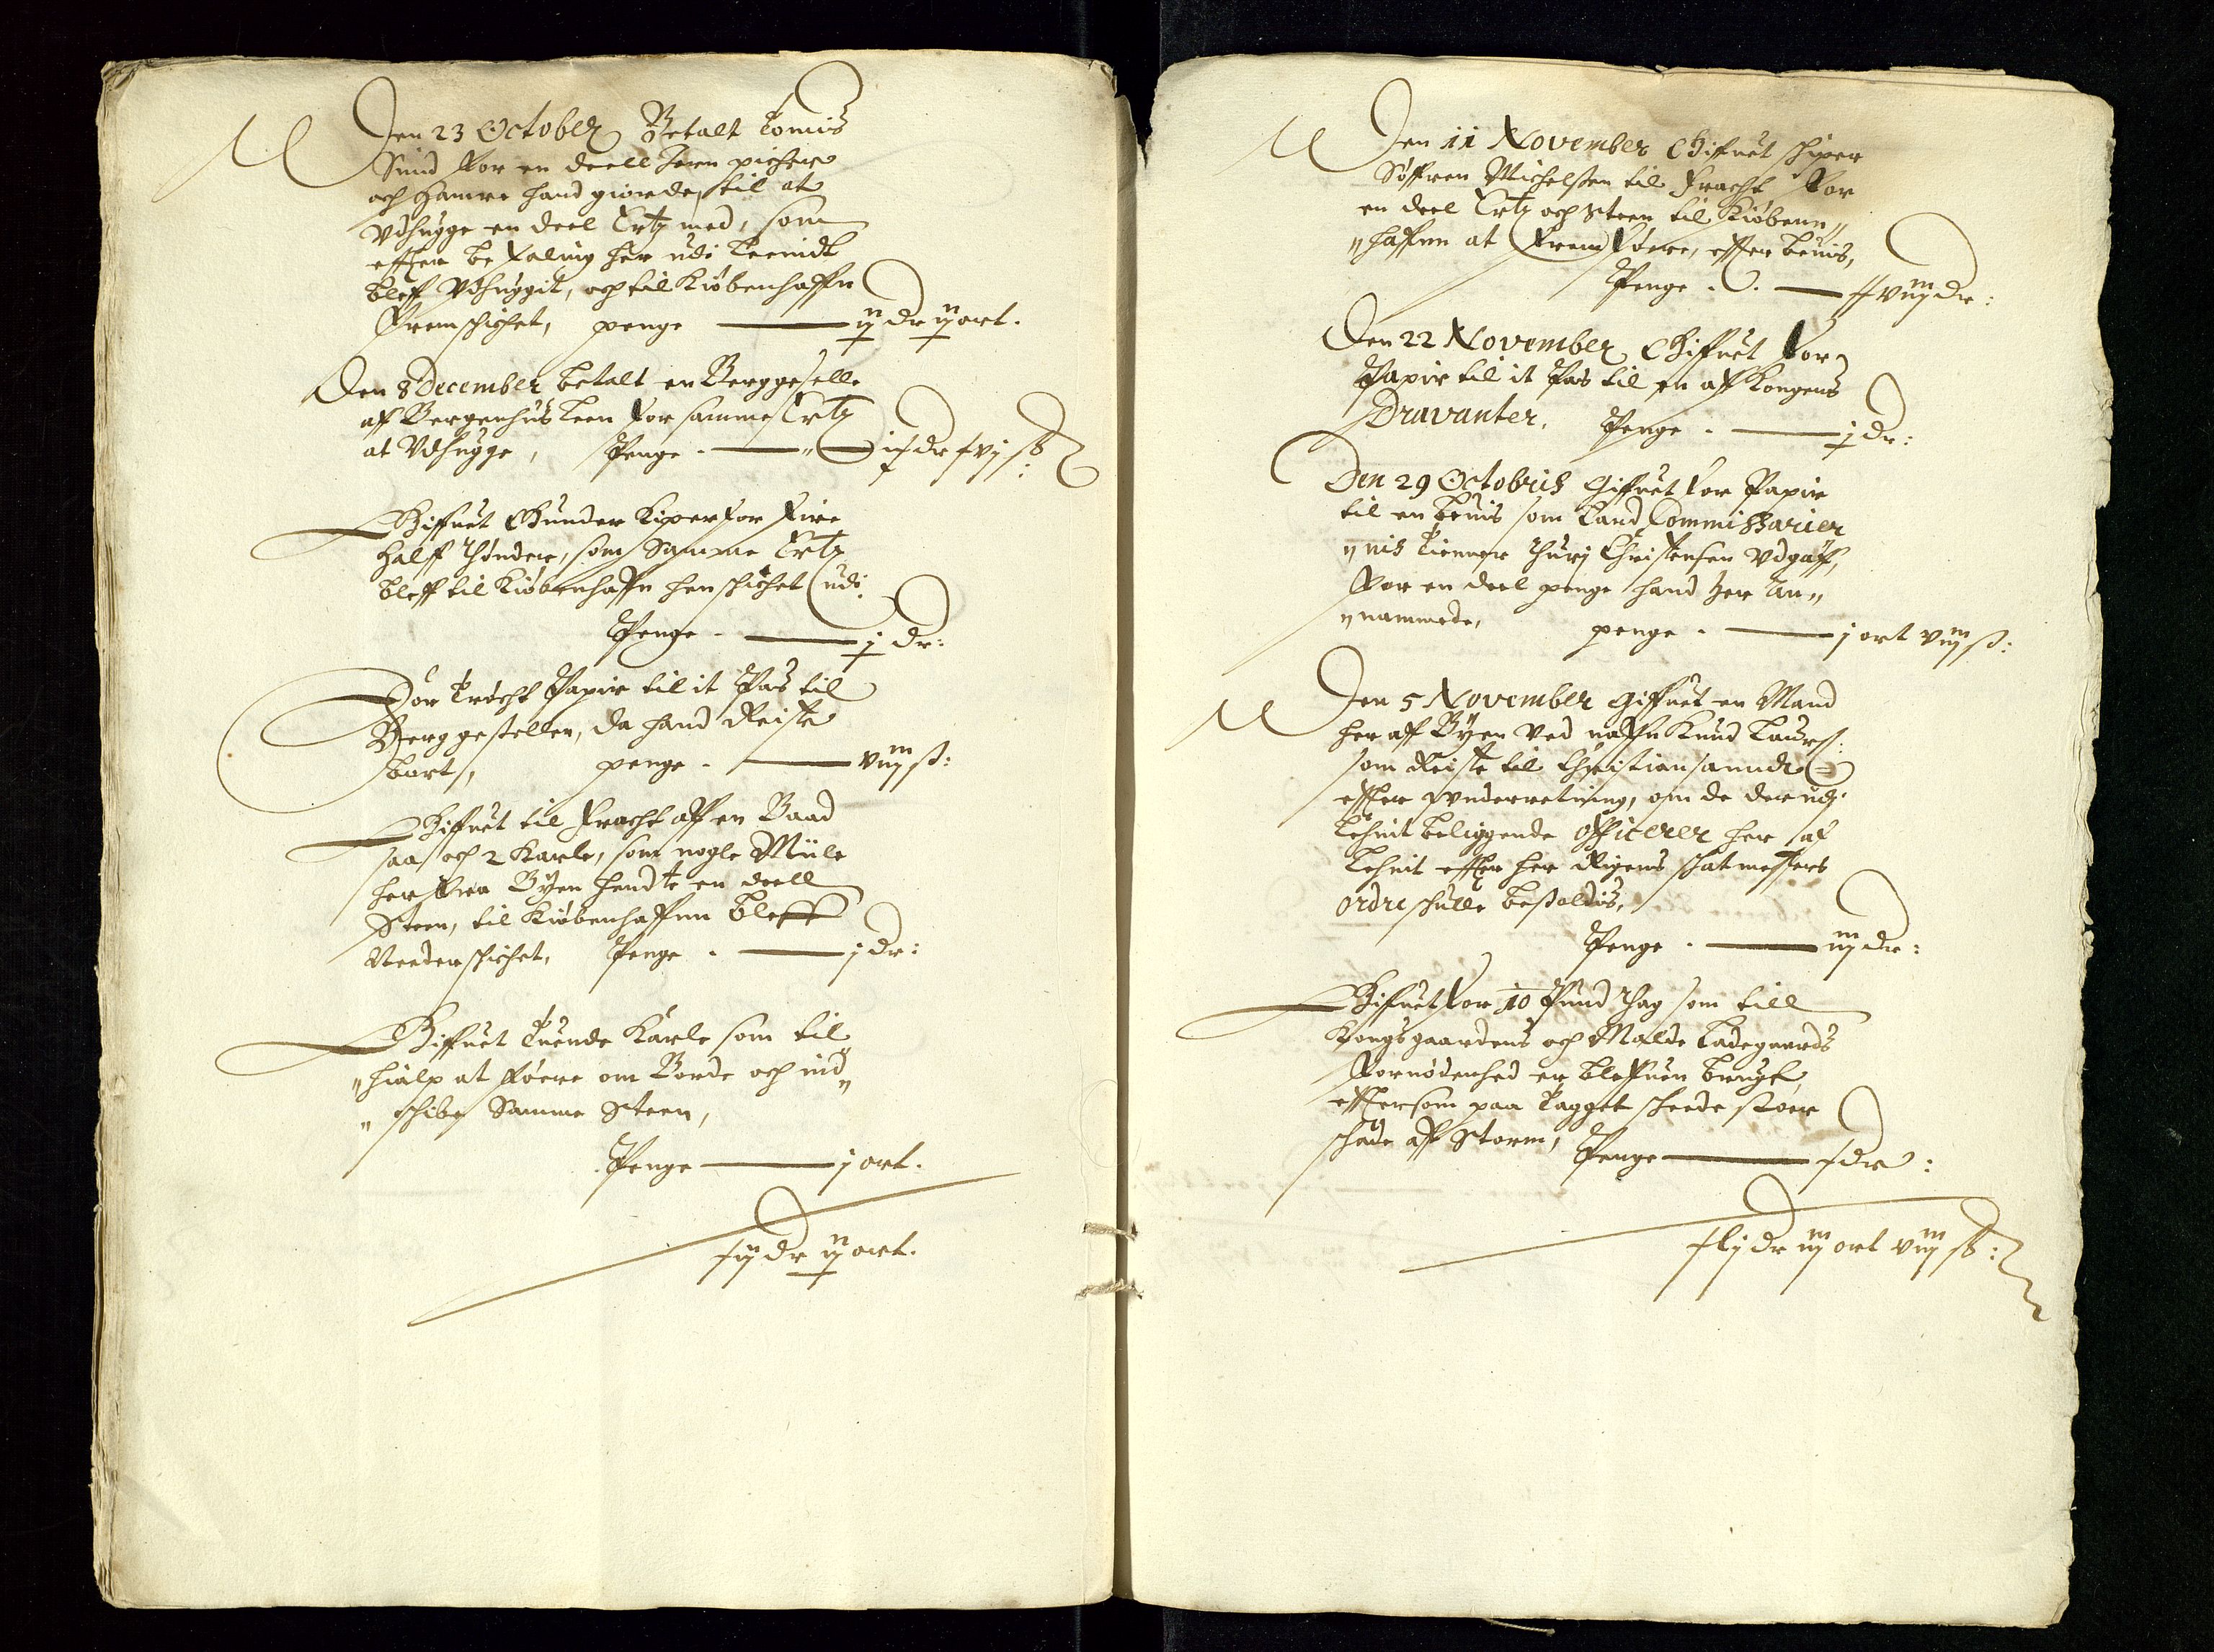 Den 23 October Betalt Tomis
Smid for en deell Jern picher
och Hamre hand giorde, til at
Vdhugge en deel Ertz med, som
effter befaling her udi Leenidt
bleff Vdhuggit, och til Kiøbenhaffn
fremschichet, penge — ij dr ij ort.
Den 8 December betalt en Berggeselle
aff Bergenhus Leen for samme Ertz
at Vdhugge, Penge —
Giffuet Gunder Kiper for fire
halff Thønder, som Samme Ertz
bleff til Kiøbenhaffn henschichet udi
Penge - — j dr:
For Trøcht Papir til it Pas til
Berggesellen, da hand Reiste
bort, penge - — viij ß:
Giffuet til Fracht aff en Baad
saa och 2 Karle, som nogle Miile
her fra Byen hendte en deell
Steen, til Kiøbenhaffnn bleff
Nederschichet, Penge - — j dr:
Giffuet Tuende Karle som til„
„hialp at føere om Borde och ind„
„schibe Samme Steen,
Penge — j ort.
xij dr ij ort.
Den 11 November Giffuet schiper
Søffren Michelsen til Fracht for
en deel Ertz och Steen til Kiøbenn„
„haffnn at fremføere, effter beuis,
Penge - — xviij dr:
Den 22 November Giffuet for
Papir til it Pas til en aff Kongens
Dravanter, Penge - — j dr:
Den 29 Octobris Giffuet for Papir
til en beuis som Land Commissarier
„nis Tienner Thurj Christensen Vdgaff,
for en deel penge hand her An„
„nammede, penge - — j ort viij ß:
Den 5 November Giffuet en Mand
her aff Byen ved naffn Knud Laurs:
som Reiste til Christiansanndt
effter Vnderretning, om de der udj
Lehnit beliggende Officerer her af
Lehnit effter her Rigens schatmesters
Ordre schulle besoldis,
Penge - — iiij dr:
Giffuet for 10 Pund Tag som till
Kongsgaardens och Malde Ladegaards
fornødenhed er bleffuen brugt,
effttersom paa Tagget scheede stoer
schade aff Storm, Penge — x dr:
xlj dr iij ort viij ß: